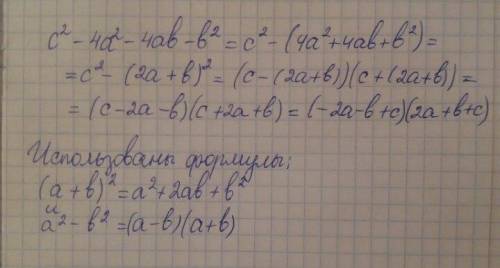 c² - 4a² - 4ab - b² = c² - (4a² + 4ab + b²) =
= c² - (2a + b)² = (c - (2a + b))(c + (2a + b)) =
= (c - 2a - b)(c + 2a + b) = (-2a - b + c)(2a + b + c)
Использованы формулы;
(a + b)² = a² + 2ab + b²
и
a² - b² = (a - b)(a + b)